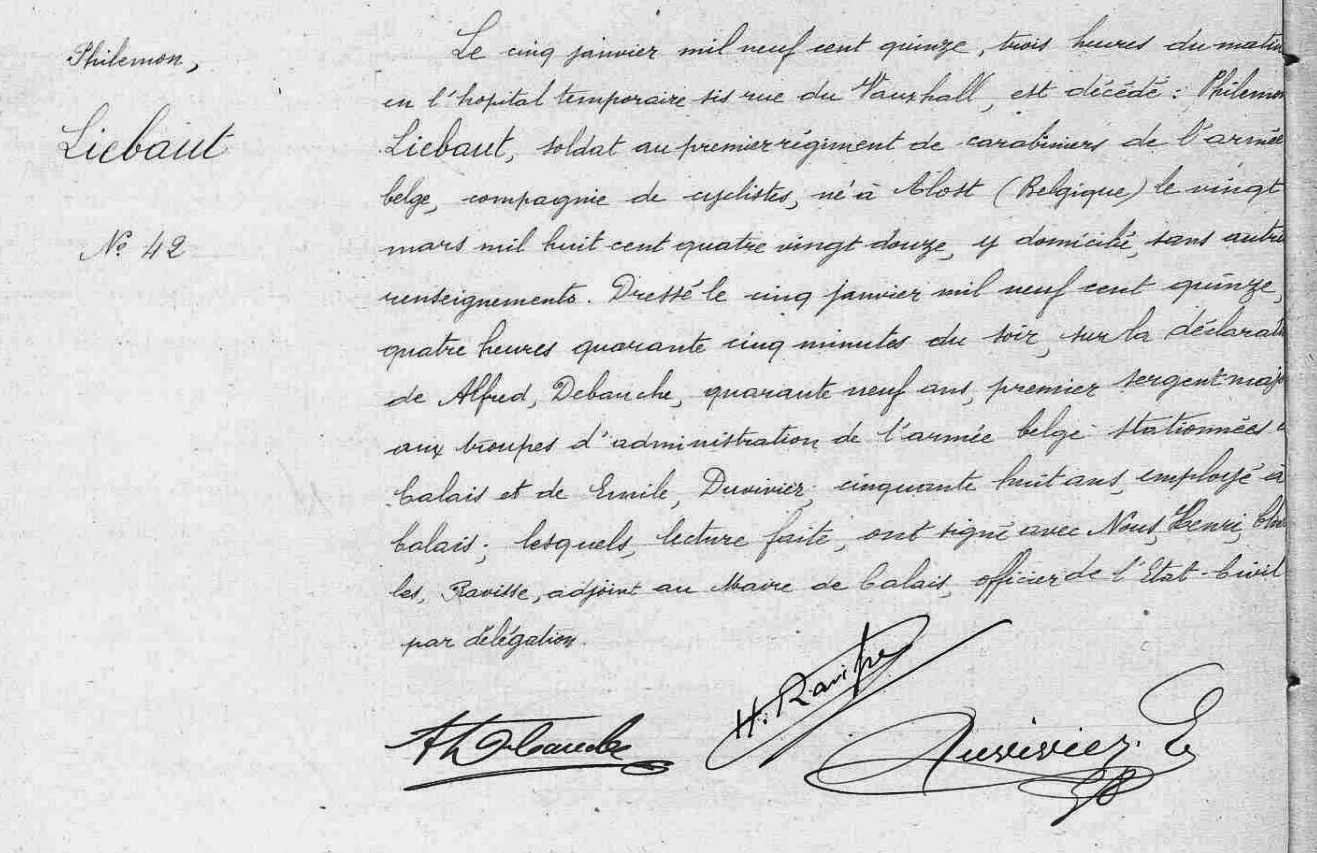 Philemon,
Liebaut
No 42
Le cinq janvier mil neuf cent quinze, trois heures du matin
en l'hopital temporaire sis rue du Vauxhall, est décédé : Philemon
Liebaut, soldat au premier régiment de carabiniers de l'armée
belge, compagnie de cyclistes, né à Alost (Belgique) le vingt
mars mil huit cent quatre vingt douze, y domicilié, sans autre
renseignements. Dressé le cinq janvier mil neuf cent quinze,
quatre heures quarante cinq minutes du soir, sur la déclarati
de Alfred, Debauche, quarante neuf ans, premier sergent maj
aux troupes d'administration de l'armée belge stationnées
Calais et de Emile, Duvivier, cinquante huit ans, employé à
Calais ; lesquels, lecture faite, ont signé avec Nous, Henri, Char
les, Ravisse, adjoint au Maire de Calais, officier de l'Etat-Civil
par délégation.
H. Ravisse
Duvivier. E